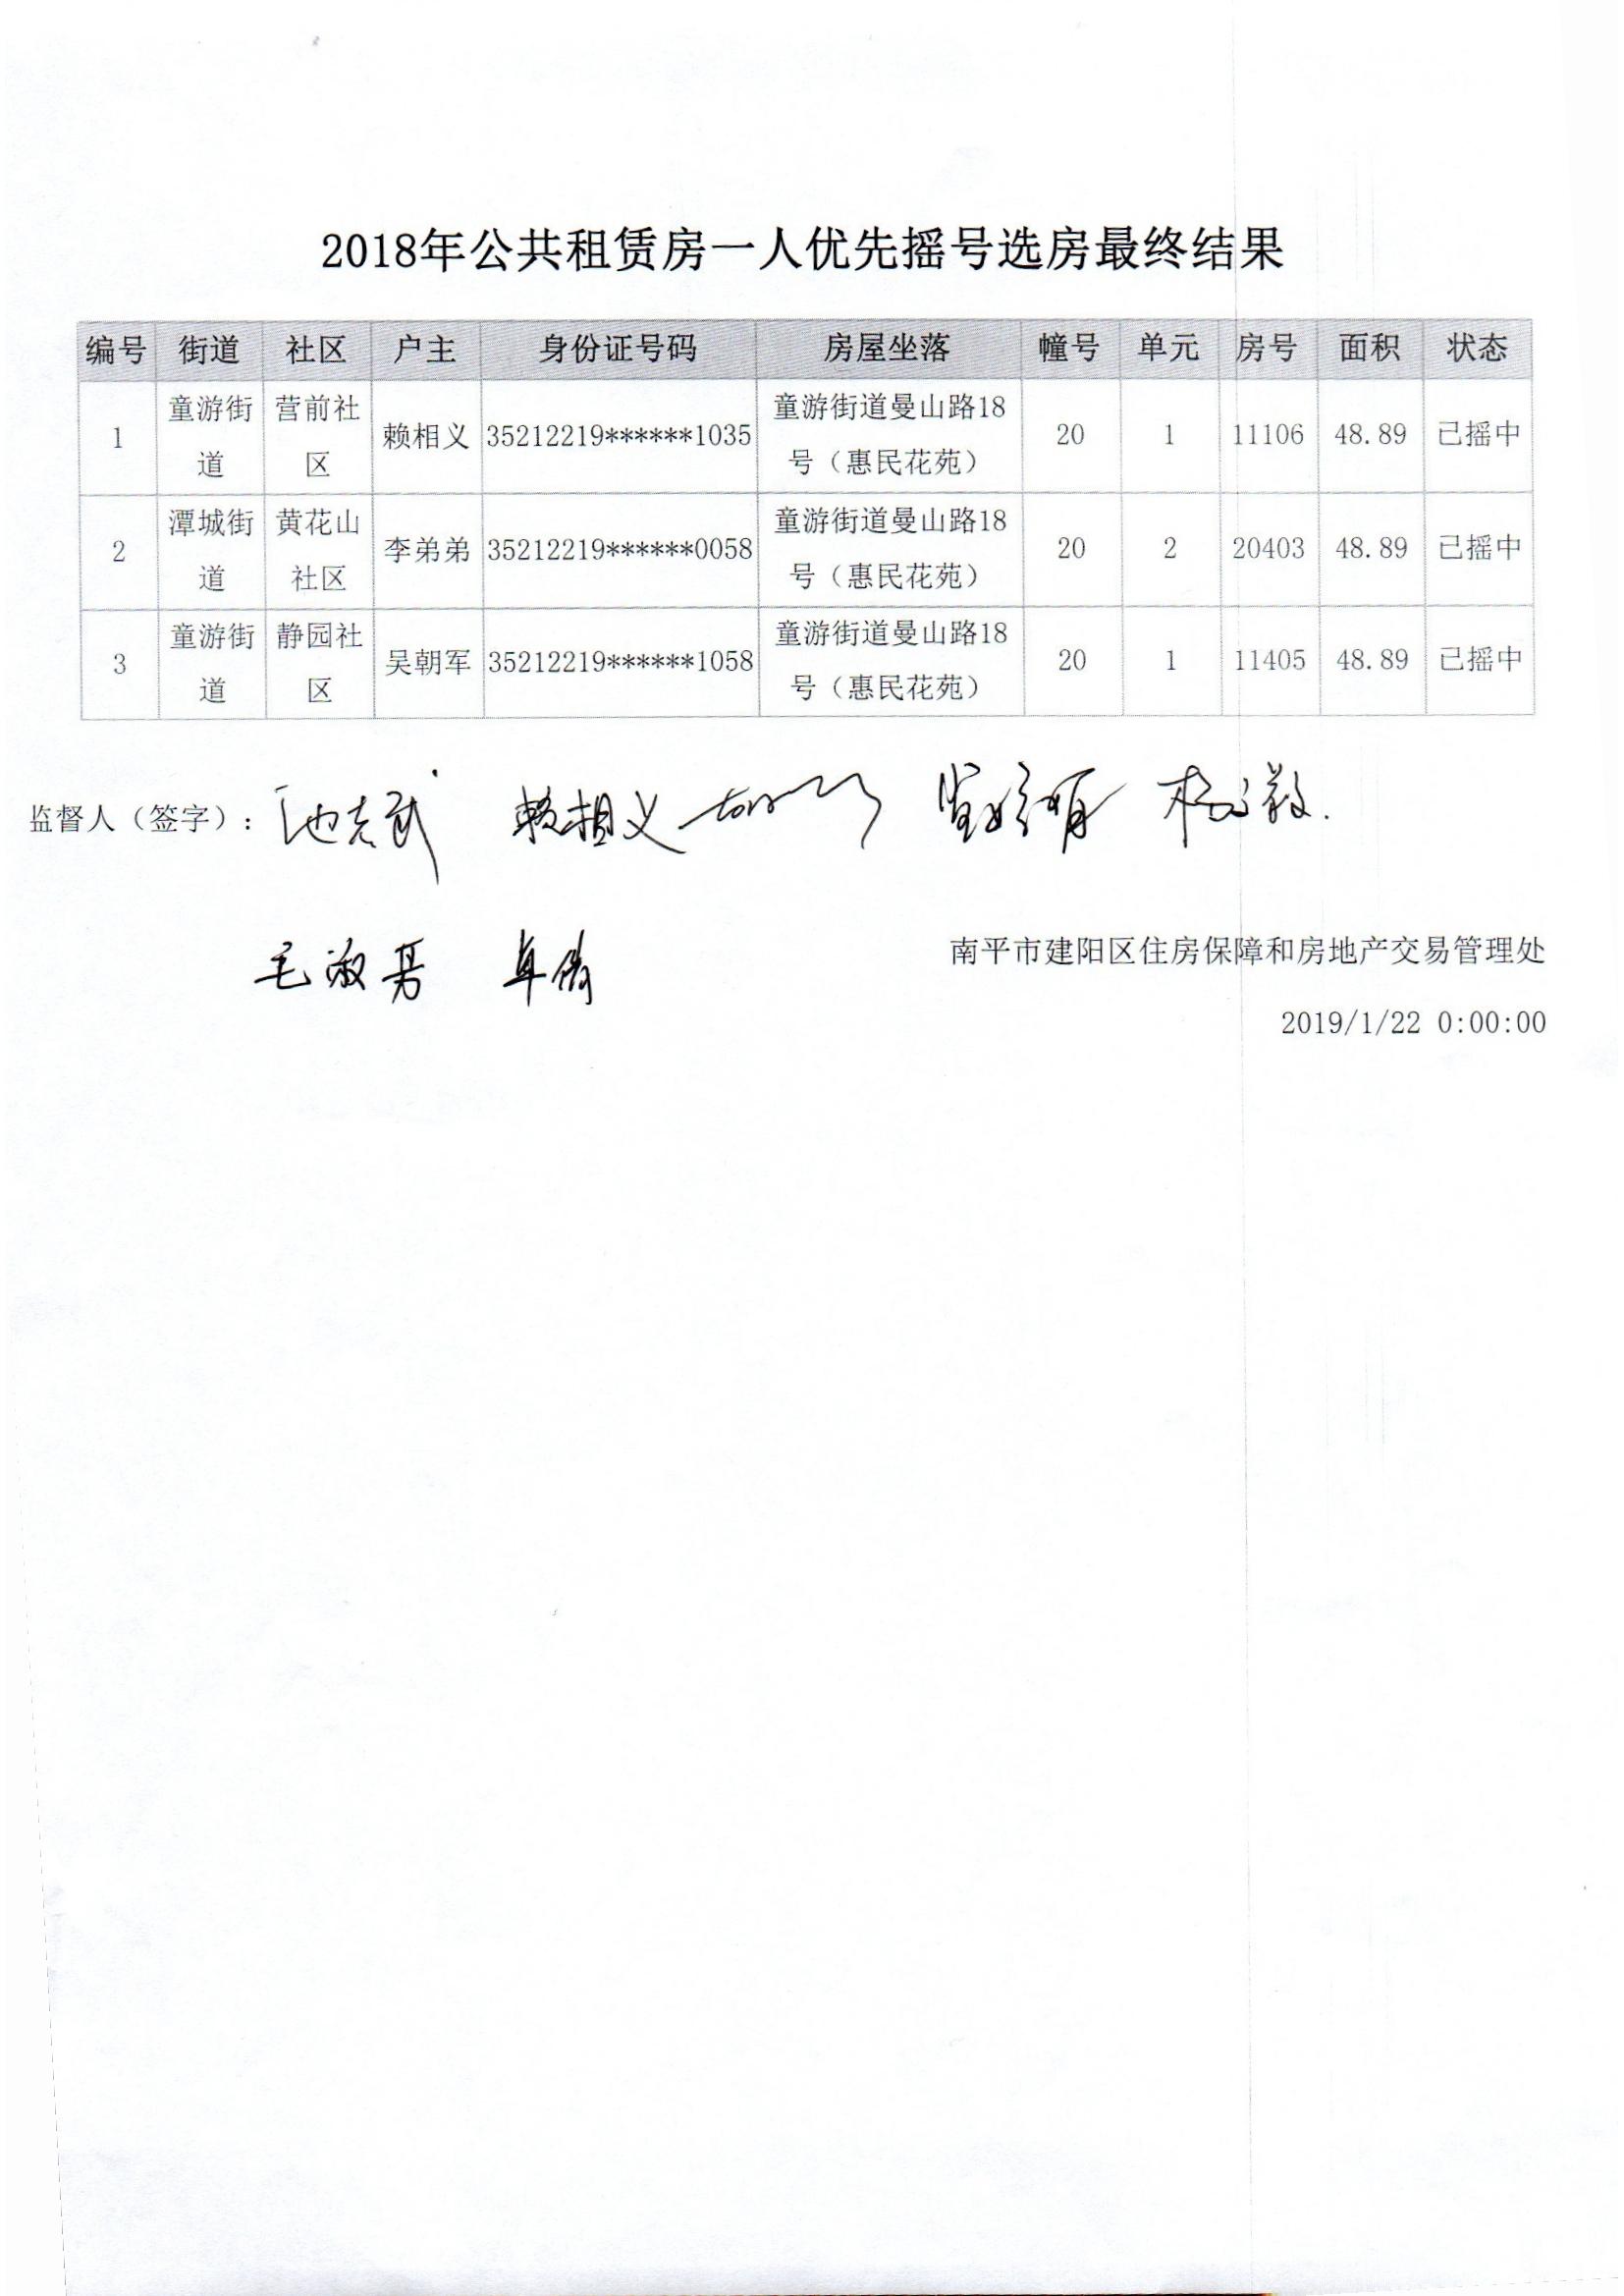 2018年公共租赁房一人优先摇号选房最终结果
编号 街道 社区 户主 身份证号码 房屋坐落 幢号 单元 房号 面积 状态
1 童游街道 营前社区 赖相义 35212219******1035 童游街道曼山路18号（惠民花苑） 20 1 11106 48.89 已摇中
2 潭城街道 黄花山社区 李弟弟 35212219******0058 童游街道曼山路18号（惠民花苑） 20 2 20403 48.89 已摇中
3 童游街道 静园社区 吴朝军 35212219******1058 童游街道曼山路18号（惠民花苑） 20 1 11405 48.89 已摇中
监督人（签字）: 池志武 赖相义
毛淑男
南平市建阳区住房保障和房地产交易管理处
2019/1/22 0:00:00